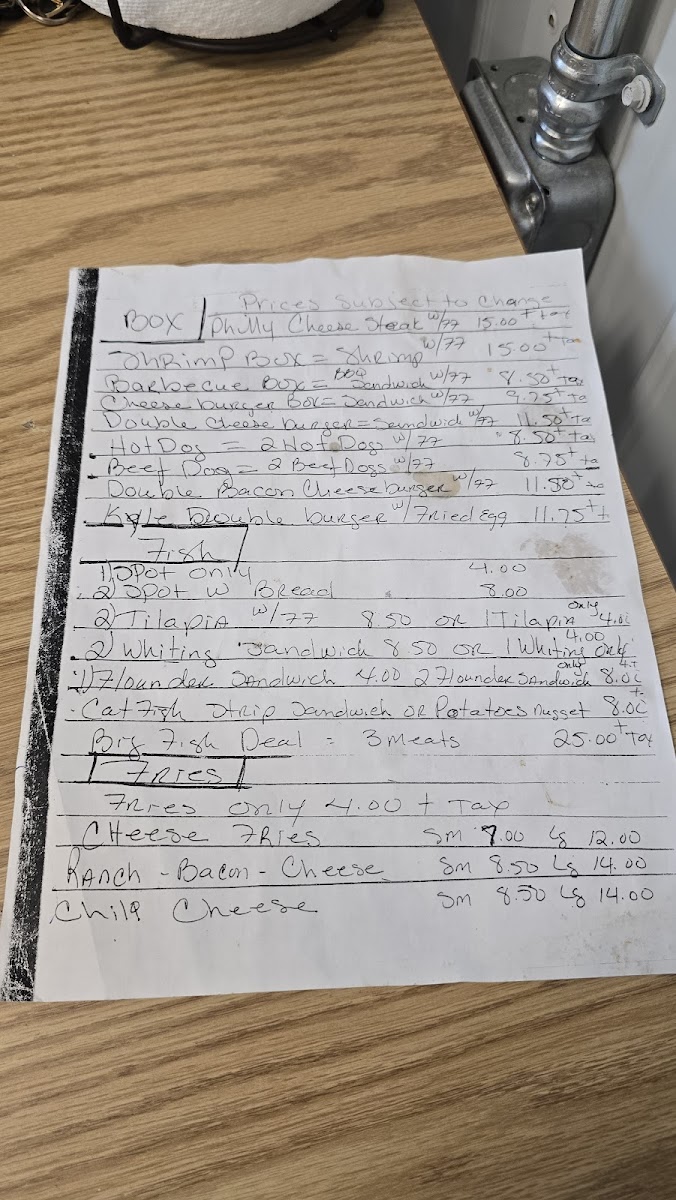 Prices Subject to Change
BOX Philly Cheese Steak w/77 15.00 + tax
Shrimp Box = Shrimp w/77 15.00 + Tax
Barbecue Box = BBQ Sandwich w/77 8.50 + Tax
Cheeseburger Box = Sandwich w/77 9.75 + Ta
Double Cheeseburger = Sandwich w/77 11.50 + Ta
. Hot Dog = 2 Hot Dogs w/77 8.50 + Tax
. Beef Dog = 2 Beef Dogs w/77 8.75 + ta
Double Bacon Cheeseburger w/77 11.50 +
. Kyle Double burger w/ Fried Egg 11.75 + t
Fish
1) Spot only 4.00
2) Spot w Bread 8.00
2) Tilapia w/77 8.50 or 1 Tilapia only 4.0
2) Whiting Sandwich 8.50 or 1 Whiting only 4.00
1) Flounder Sandwich 4.00 2 Flounder Sandwich 8.0
. Catfish Strip Sandwich or Potatoes nugget 8.0
Big Fish Deal = 3 meats 25.00 + Tax
Fries
Fries only 4.00 + Tax
Cheese Fries Sm 7.00 Lg 12.00
Ranch - Bacon - Cheese Sm 8.50 Lg 14.00
Chile Cheese Sm 8.50 Lg 14.00